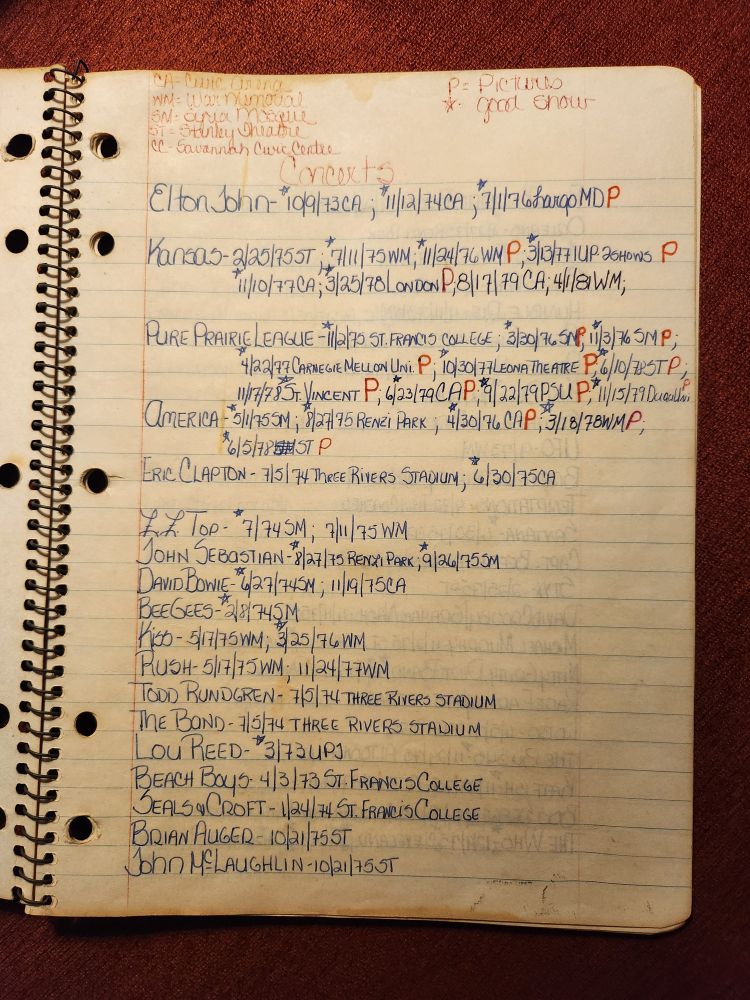 CA= Civic Arena
P= Pictures
WM= War Memorial
*= good show
SM= Syria Mosque
ST= Stanley Theatre
CC= Savannah Civic Centre
Concerts
Elton John- *10/9/73CA ; *11/12/74CA ; *7/1/76 Largo MD P
Kansas- 2/25/75ST ; *7/11/75WM; *11/24/76 WM P; *3/13/77IUP-2shows P
*11/10/77CA; *3/25/78 London P; 8/17/79 CA; 4/1/81WM;
Pure Prairie League - *11/2/75 St. Francis College ; *3/30/76 SM P; *11/3/76 SM P;
*4/22/77 Carnegie Mellon Uni. P; *10/30/77 Leona Theatre P; *6/10/78ST P;
11/17/78 *St. Vincent P; *6/23/79CA P; *9/22/79PSU P; *11/15/79 P
America- *5/1/75SM ; *8/27/75 Renzi Park ; *4/30/76 CA P; *3/18/78WM P;
*6/5/78 ST P
Eric Clapton - 7/5/74 Three Rivers Stadium; *6/30/75CA
ZZ Top- *7/74SM; 7/11/75 WM
John Sebastian- *8/27/75 Renzi Park; *9/26/75SM
David Bowie- *6/27/74SM; 11/19/75CA
BeeGees- *2/8/74SM
Kiss- 5/17/75WM; *3/25/76 WM
Rush- 5/17/75WM; 11/24/77WM
Todd Rundgren- 7/5/74 Three Rivers Stadium
The Band- 7/5/74 Three Rivers Stadium
Lou Reed- *3/73 UPJ
Beach Boys- 4/3/73 St. Francis College
Seals & Croft- 1/24/74 St. Francis College
Brian Auger- 10/21/75ST
John McLaughlin-10/21/75ST